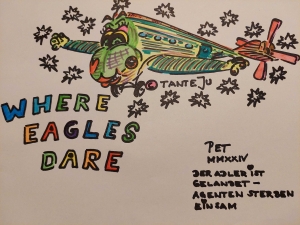 TANTE JU
WHERE
EAGLES
DARE
PET
MMXXIV
DER ADLER IST
GELANDET -
AGENTEN STERBEN
EINSAM